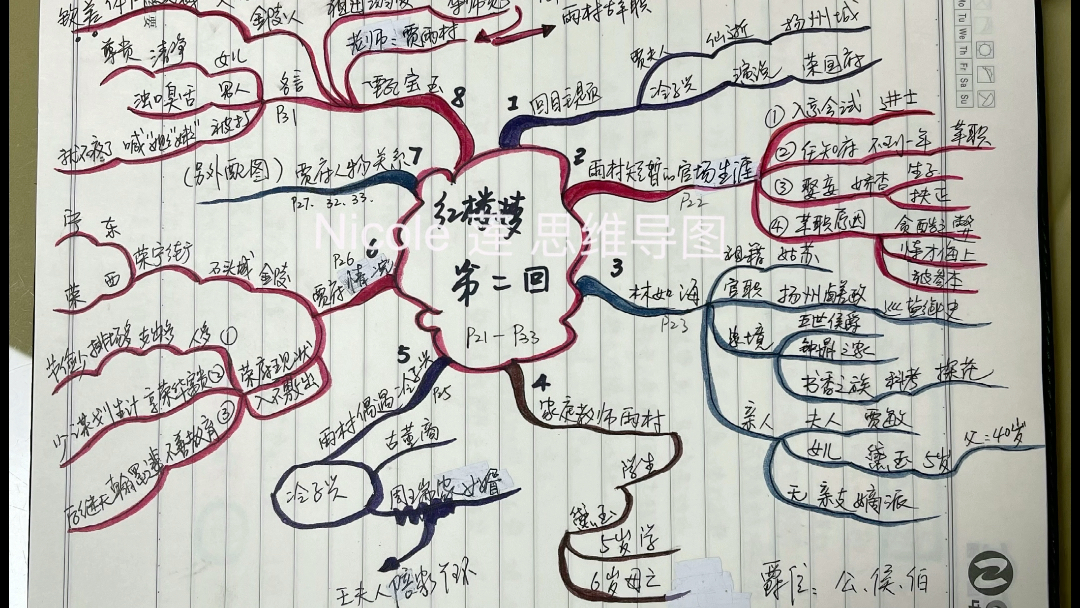 红楼梦
第二回
P21-P33
Nicole 莲 思维导图
1
回目主题
贾夫人
仙逝
扬州城
冷子兴
演说
荣国府
2
雨村短暂的官场生涯
P22
① 入京会试 进士
② 任知府 不到一年 革职
③ 娶妾 娇杏 生子
扶正
④ 革职原因
恃才侮上
被参本
3
林如海
P23
祖籍 姑苏
官职 扬州 巡盐御史
五世侯爵
钟鼎之家
书香之族 科考 探花
亲人
夫人 贾敏
女儿 黛玉 5岁
父:40岁
无亲支嫡派
4
家庭教师雨村
学生
黛玉
5岁学
6岁母亡
爵位:公、侯、伯
5
雨村偶遇冷子兴
P25
古董商
冷子兴
周瑞家女婿
王夫人陪房
6
P26
贾府情况
金陵
石头城
荣宁街
宁 东
荣 西
荣府现状
入不敷出
①
人多
②
享荣华富贵
③
不善教育
7
贾府人物关系
(另外配图)
P27. 32. 33.
8
甄宝玉
老师:贾雨村
名言
P31
女儿
清净
尊贵
男人
浊口臭舌
被打
金陵人